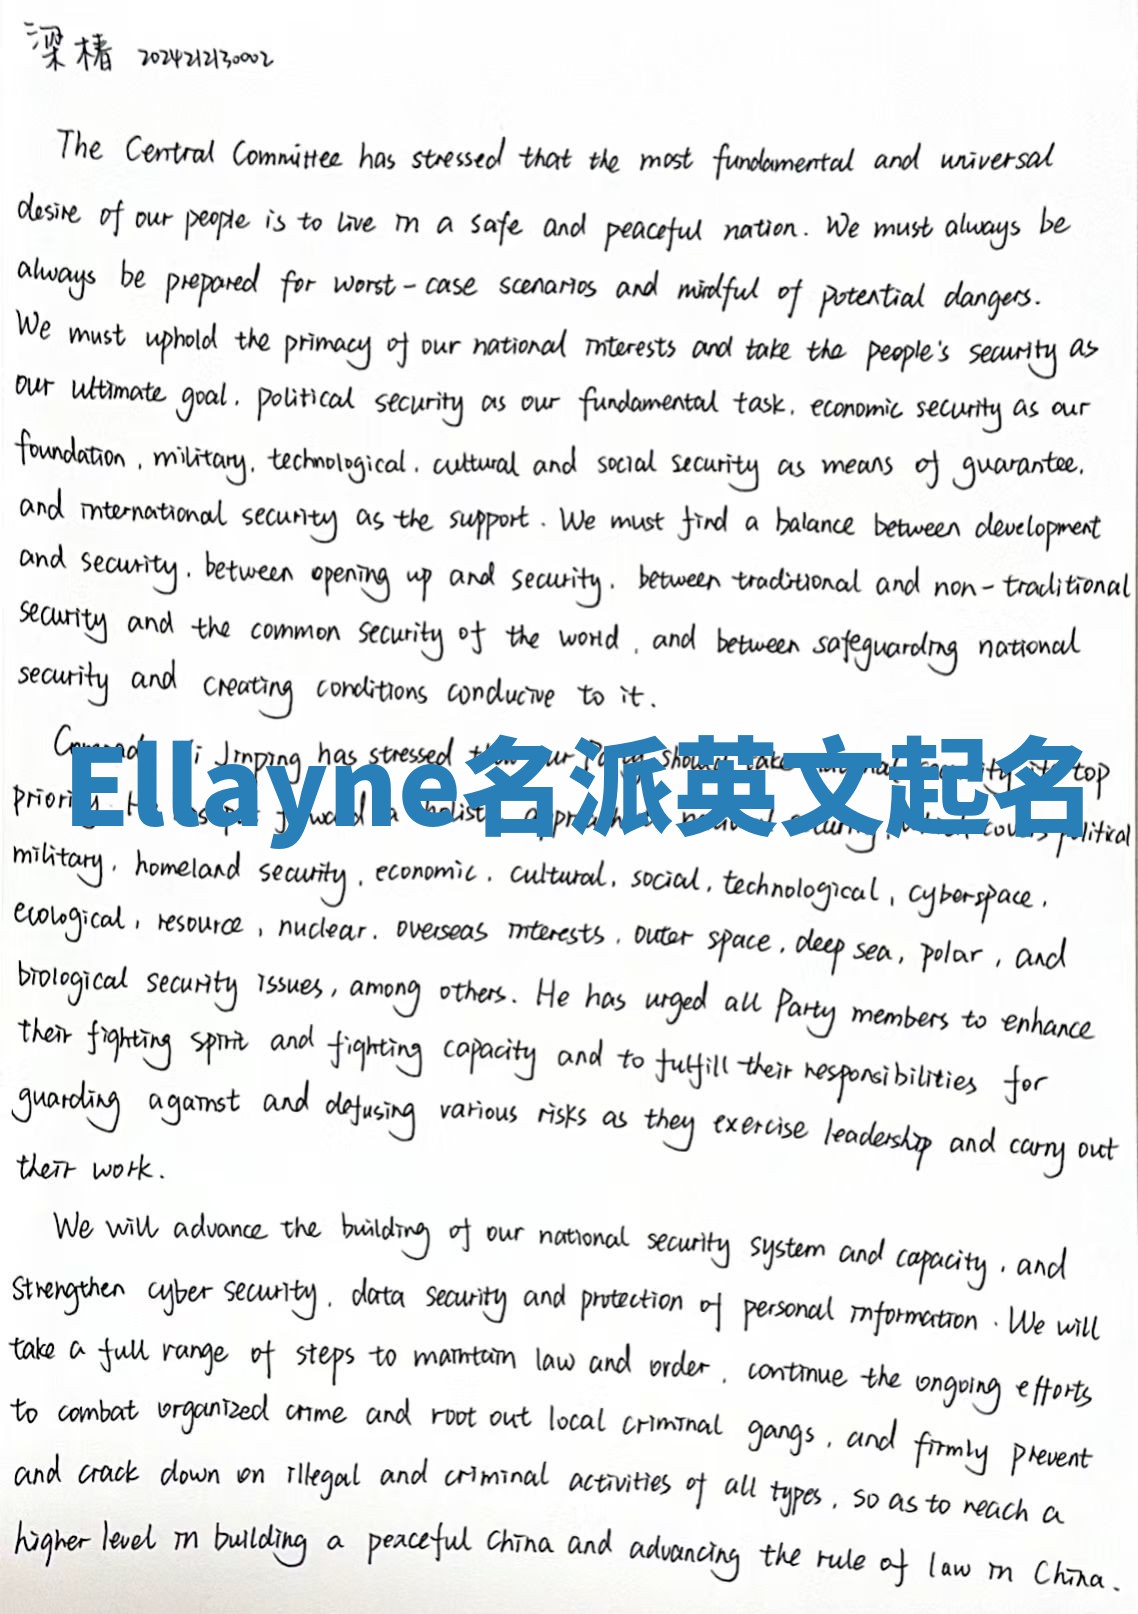 梁椿 2024212130002
The Central Committee has stressed that the most fundamental and universal
desire of our people is to live in a safe and peaceful nation. We must always be
always be prepared for worst-case scenarios and mindful of potential dangers.
We must uphold the primacy of our national interests and take the people's security as
our ultimate goal, political security as our fundamental task, economic security as our
foundation, military, technological, cultural and social security as means of guarantee,
and international security as the support. We must find a balance between development
and security, between opening up and security, between traditional and non-traditional
security and the common security of the world, and between safeguarding national
security and creating conditions conducive to it.
Jinping has stressed top
Ellayne名派英文起名
political
military, homeland security, economic, cultural, social, technological, cyberspace,
ecological, resource, nuclear, overseas interests, outer space, deep sea, polar, and
biological security issues, among others. He has urged all Party members to enhance
their fighting spirit and fighting capacity and to fulfill their responsibilities for
guarding against and defusing various risks as they exercise leadership and carry out
their work.
We will advance the building of our national security system and capacity, and
strengthen cyber security, data security and protection of personal information. We will
take a full range of steps to maintain law and order, continue the ongoing efforts
to combat organized crime and root out local criminal gangs, and firmly prevent
and crack down on illegal and criminal activities of all types, so as to reach a
higher level in building a peaceful China and advancing the rule of law in China.